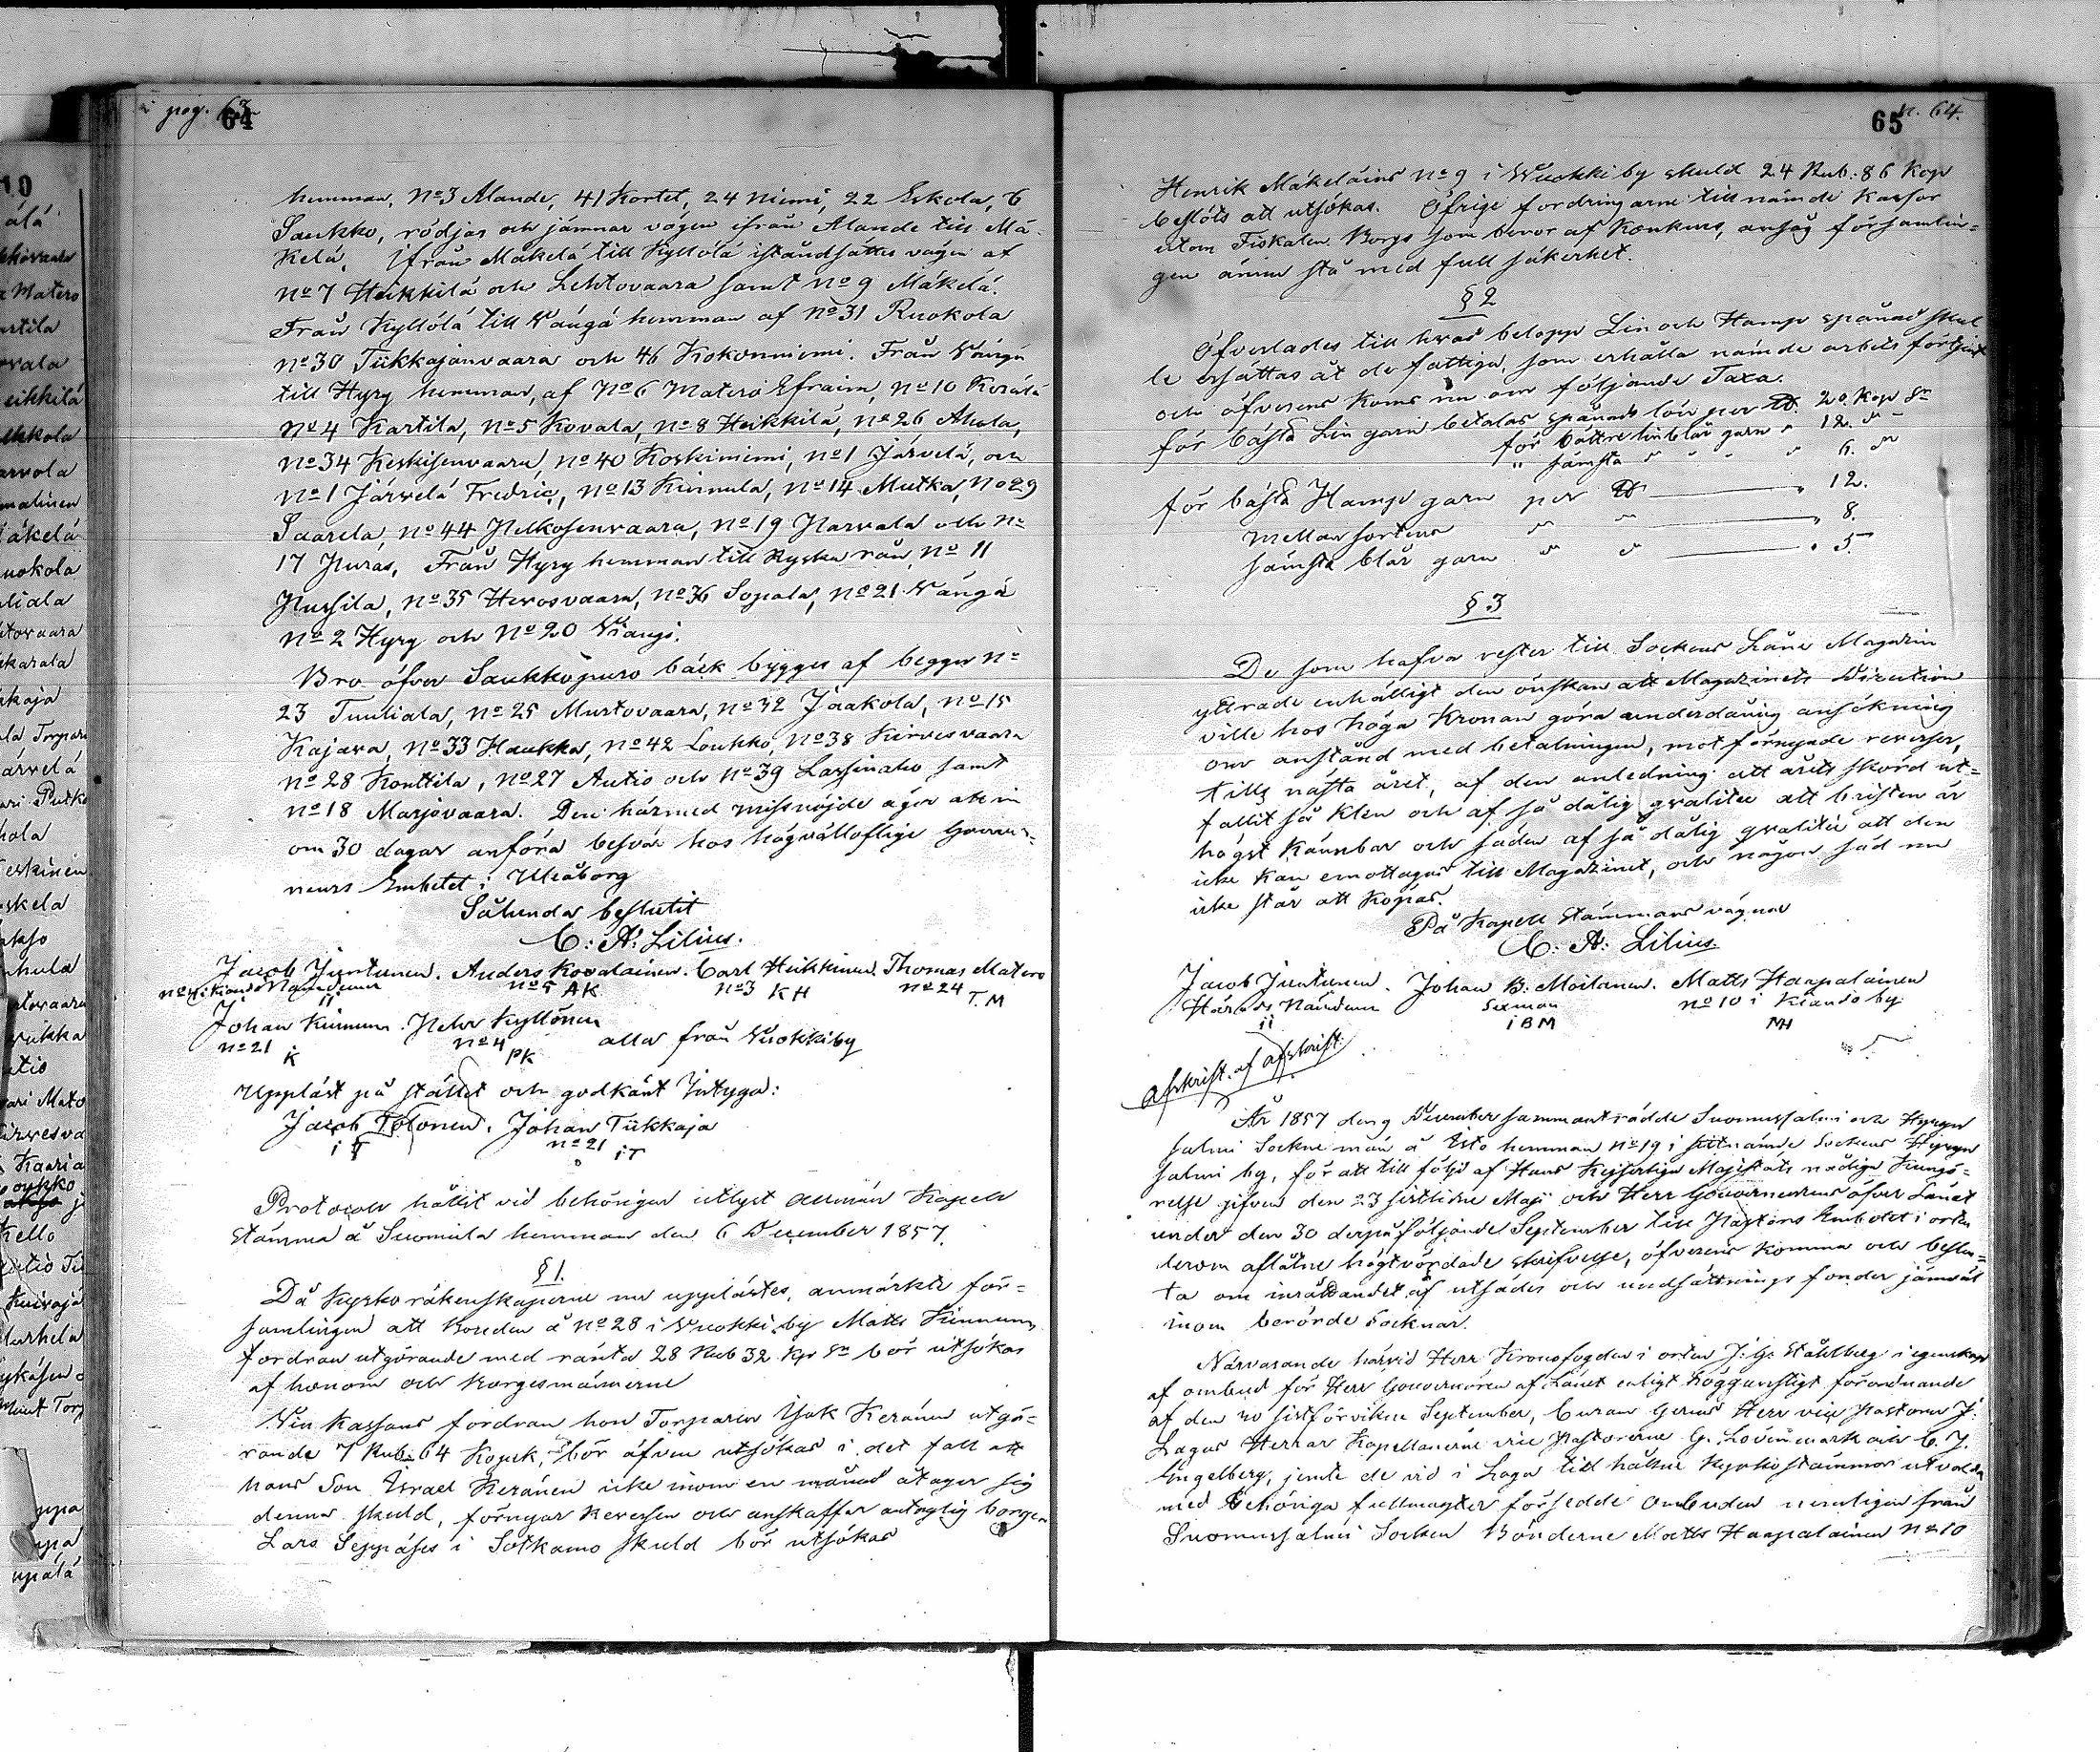 pag. 63
64
hemman, No 3 Alande, 41 Kortet, 24 Niemi, 22 Eskola, 6
Saukko, rödjas och jämnar vägen ifrån Alande till Mä-
kelä, ifrån Mäkelä till Kyllölä iståndsättes vägen af
No 7 Heikkilä och Lehtovaara samt No 9 Mäkelä.
Från Kyllölä till Wängä hemman af No 31 Ruokola
No 30 Tiikkajanvaara och 46 Kokonniemi. Från Wängä
till Hyry hemman, af No 6 Matero Efraim, No 10
No 4 Kartila, No 5 Kovala, No 8 Heikkilä, No 26 Ahola,
No 34 Keskisenvaara, No 40 Koskiniemi, No 1 Järvelä, och
No 1 Järvelä Fredric, No 13 Kinnula, No 14 Mutka, No 29
Saarela, No 44 Pelkosenvaara, No 19 Parvala och No
17 Puras, Från Hyry hemman till Ryska rån, No 11
Pussila, No 35 Hevosvaara, No 36 Sopala, No 21 Wängä
No 2 Hyry och No 20 Wiangi.
Bro öfver Saukkopuro bäck bygges af begge No
23 Tuuliala, No 25 Murtovaara, No 32 Jaakola, No 15
Kajava, No 33 Haukka, No 42 Loukko, No 38 Kirvesvaara
No 28 Konttila, No 27 Autio och No 39 Lassinaho samt
No 18 Marjovaara. Den härmed missnöjde äger att in
om 30 dagar anföra besvär hos högvälloflige Gouver-
neurs Embetet i Uleåborg
Sålunda beslutit
C: A: Lilius.
Jacob Juntunen. Anders Kovalainen. Carl Heikkinen. Thomas Matero
Nämdeman No 5 AK No 3 KH No 24 T.M
Johan Kinnunen. Petter Kyllönen
No 21 K No 4 PK alla från Wuokki by
Uppläst på stället och godkänt Intyga:
Jacob Tolonen. Johan Tiikkaja
i T No 21 i T
Protocoll hållit vid behörigen utlyst allmän Kapell
stämma å Suomula hemman den 6 December 1857.
§ 1.
Då Kyrko räkenskaperne nu upplästes, anmärkte för=
samlingen att Bonden å No 28 i Wuokki by Matts Kinnunens
fordran utgörande med ränta 28 Rub 32 Kop Sr bör utsökas
af honom och Borgesmännerne
Vin Kassans fordran hos Torparen Isak Keränen utgö=
rande 7 Rub. 64 Kopek, bör äfven utsökas i det fall att
hans Son Israel Keränen icke inom en månad åtager sig
denna skuld, förnyar Reversen och anskaffar antaglig borgen
Lars Seppäses i Sotkamo skuld bör utsökas
65
p. 64.
Henrik Mäkeläins No 9 i Wuokki by skuld 24 Rub: 86 Kop
beslöts att utsökas. Öfrige fordringarne till nämde Kassor
utom Fiskalen Borgs som beror af Konkurs, ansåg församlin=
gen ännu stå med full säkerhet.
§ 2
Öfverlades till hvad belopp Lin och Hamp spånad skul
le ersättas åt de fattiga, som erhålla nämde arbets förtjenst
och öfverens koms nu om följande Taxa.
för bästa Lin garn betalas spånads lön per ℔. 20. Kop Sr
för bättre linblår garn " 12. "
" sämsta " " " " 6. "
för bästa Hamp garn per ℔ " 12.
mellan sortens " " " 8.
sämsta blår garn " " " 5.
§ 3
De som hafva rester till Sockens Låne Magazin
yttrade enhälligt den önskan att Magazinets Direction
ville hos höga Kronan göra underdånig ansökning
om anstånd med betalningen, mot förnyade reverser,
tills nästa året, af den anledning att årets skörd ut=
fallit så klen och af så dålig qvalitée att bristen är
högst kännbar och säden af så dålig qvalitée att den
icke kan emottagas till Magazinet, och någon säd nu
icke står att köpas.
På Kapell Stämmans vägnar
C: A: Lilius.
Jacob Juntunen. Johan B. Moilanen. Matts Haapalainen
Härads Nämdeman Sexman No 10 i Kiando by
ii i B M MH
afskrift af afskrift.
År 1857 den 9 December sammanträdde Suomussalmi och Hyryn
salmi Sockne män å Isto hemman No 19 i sistnämde Sockens Hyryn
salmi by, för att till följd af Hans Kejserliga Majestäts nådiga Kungö=
relse gifven den 23 sistlidne Maji och Herr Gouverneurens öfver Länet
under den 30 derpåföljande September till Pastors Embetet i orten
derom aflåtne högtvördade skrifvelse, öfverens komma och beslu=
ta om inrättandet af utsädes och undsättnings fonder jämväl
inom berörde Socknar.
Närvarande härvid Herr Kronofogden i orten J. G. Ståhlberg i egenskap
af ombud för Herr Gouvernören af Länet enligt höggunstigt förordnande
af den 30 sistförvikne September, Curam Gerens Herr vice Pastoren J:
Lagus Herrar Kapellanerne vice Pastorerne G. Lövenmark och C. J.
Engelberg, jemte de vid i Laga till hållne Kyrkostämmor utvalda
med behöriga fullmagter försedde Ombuden nemligen från
Suomussalmi Socken Bönderne Matts Haapalainen No 10